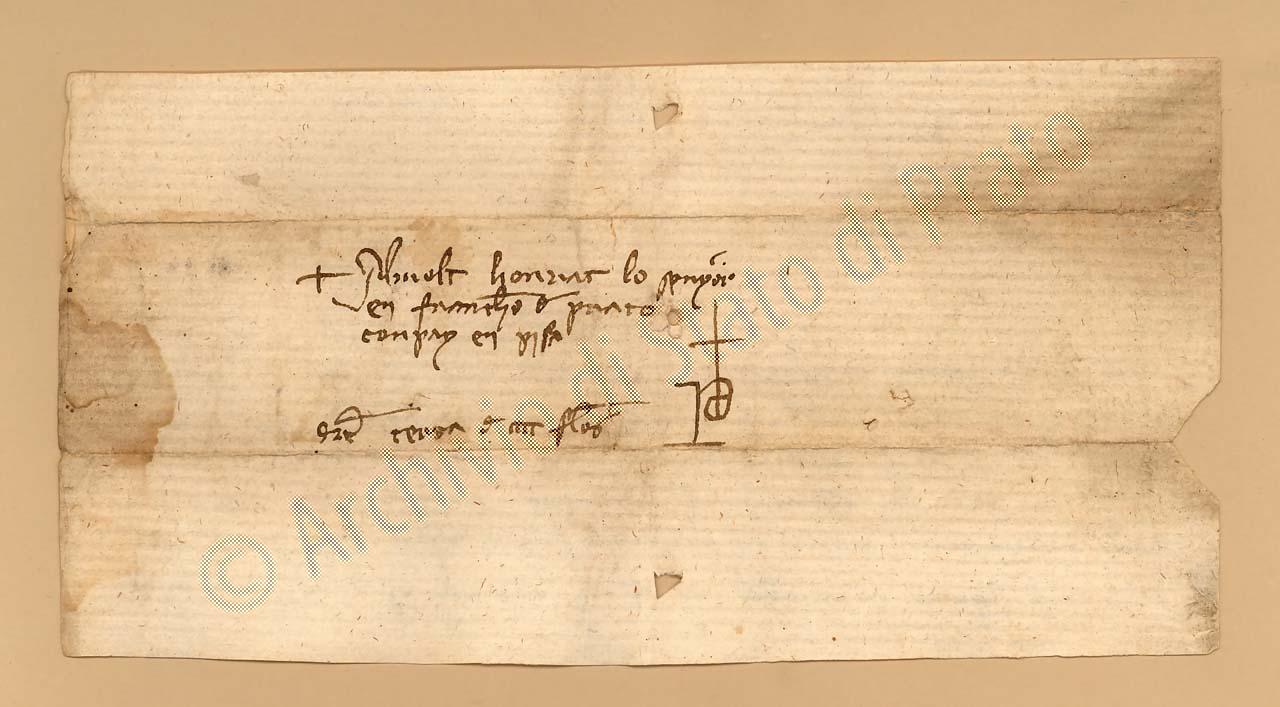 + Al molt honrat lo senyor
en franchо̄ d prato
conpay en pisa
terça d
© Archivio di Stato di Prato